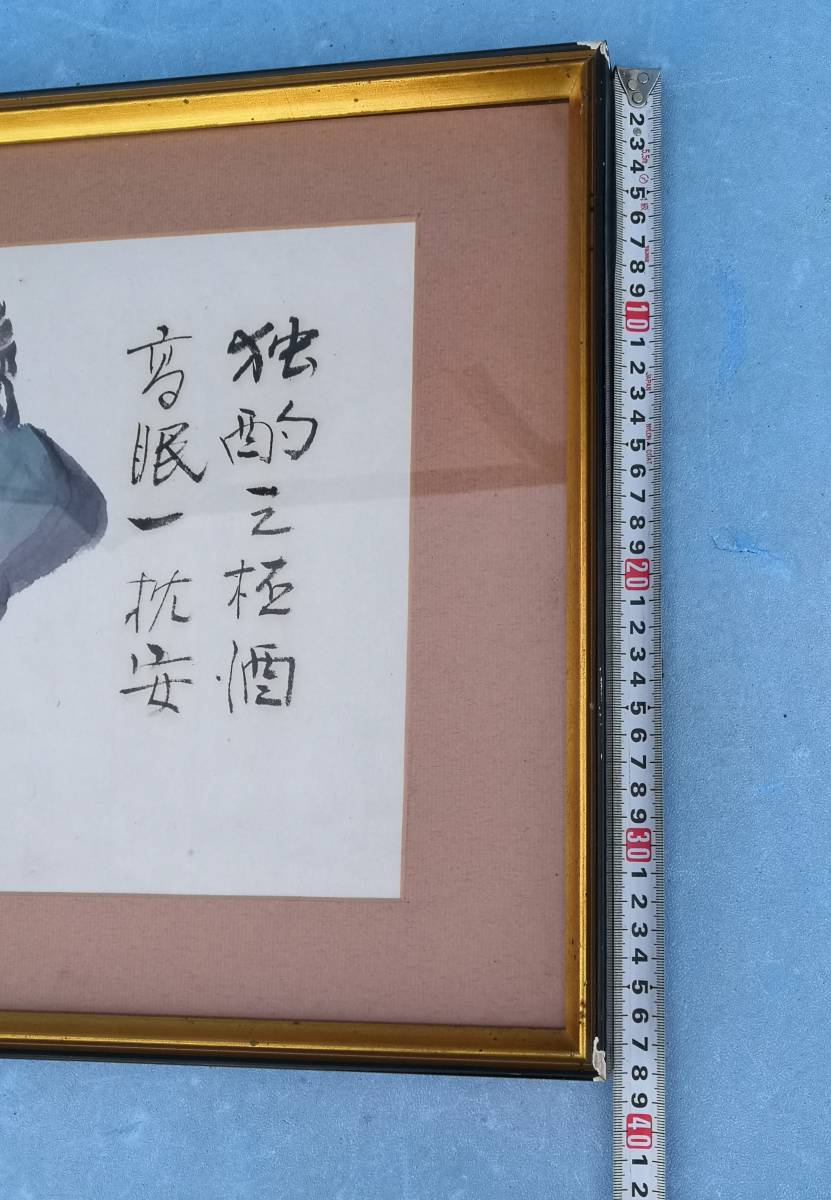 独酌三杯酒
高眠一枕安
2 3 4 5 6 7 8 9 10 1 2 3 4 5 6 7 8 9 20 1 2 3 4 5 6 7 8 9 30 1 2 3 4 5 6 7 8 9 40 1 2
5.5m
JAPAN
NYLON COAT